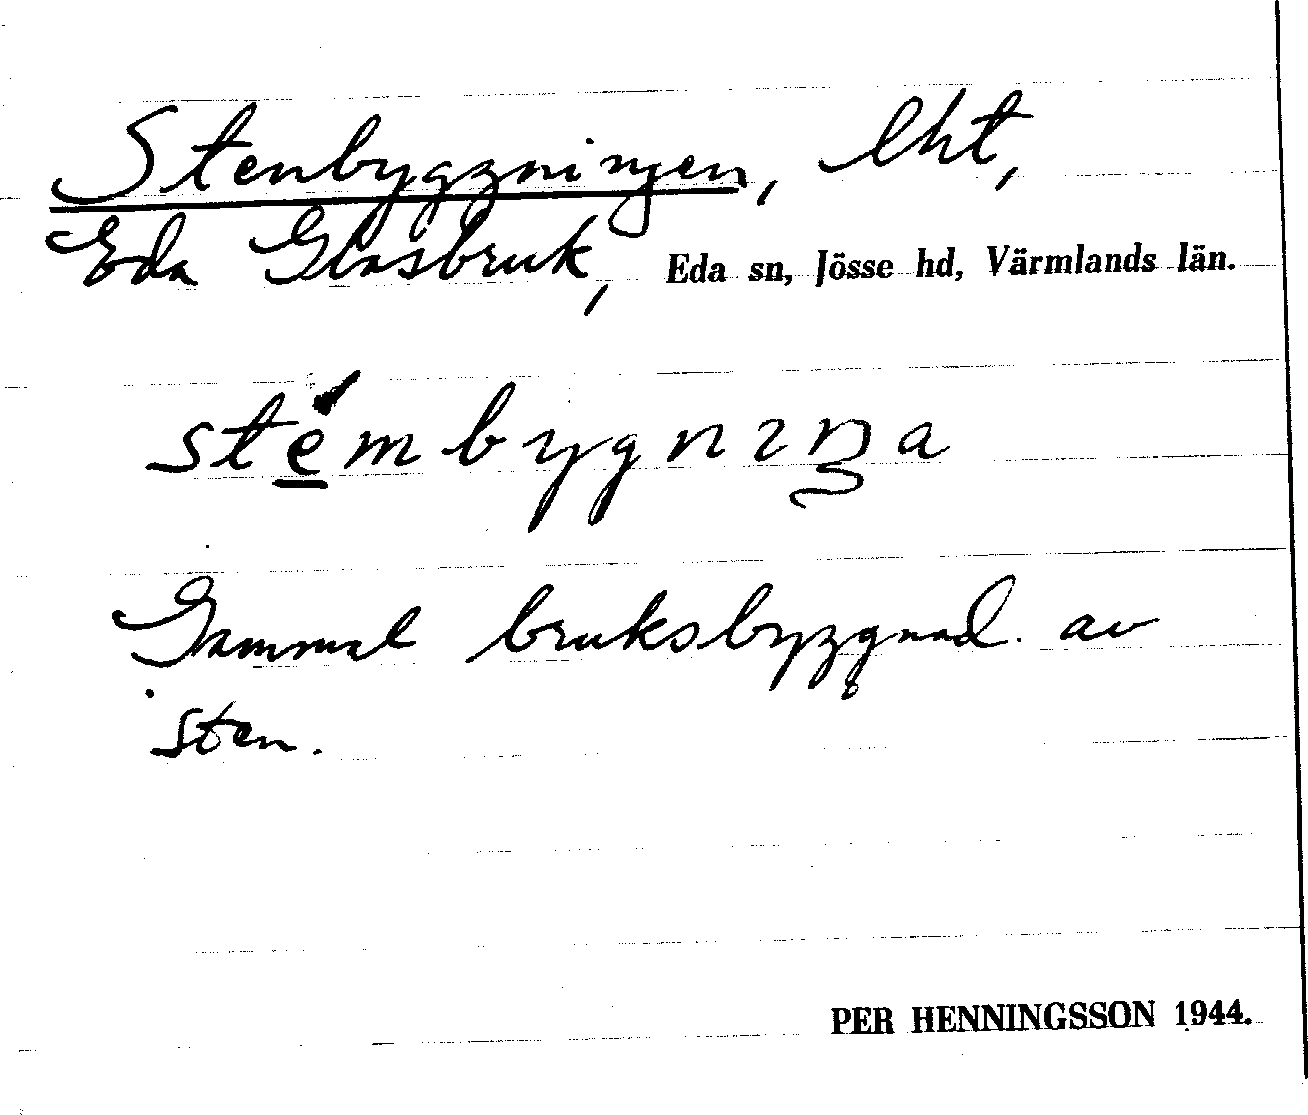 Stenbyggningen, lht,
Eda Glasbruk, Eda sn, Jösse hd, Värmlands län.
sté̲mbygnıŋa
Gammal bruksbyggnad av
sten.
PER HENNINGSSON 1944.